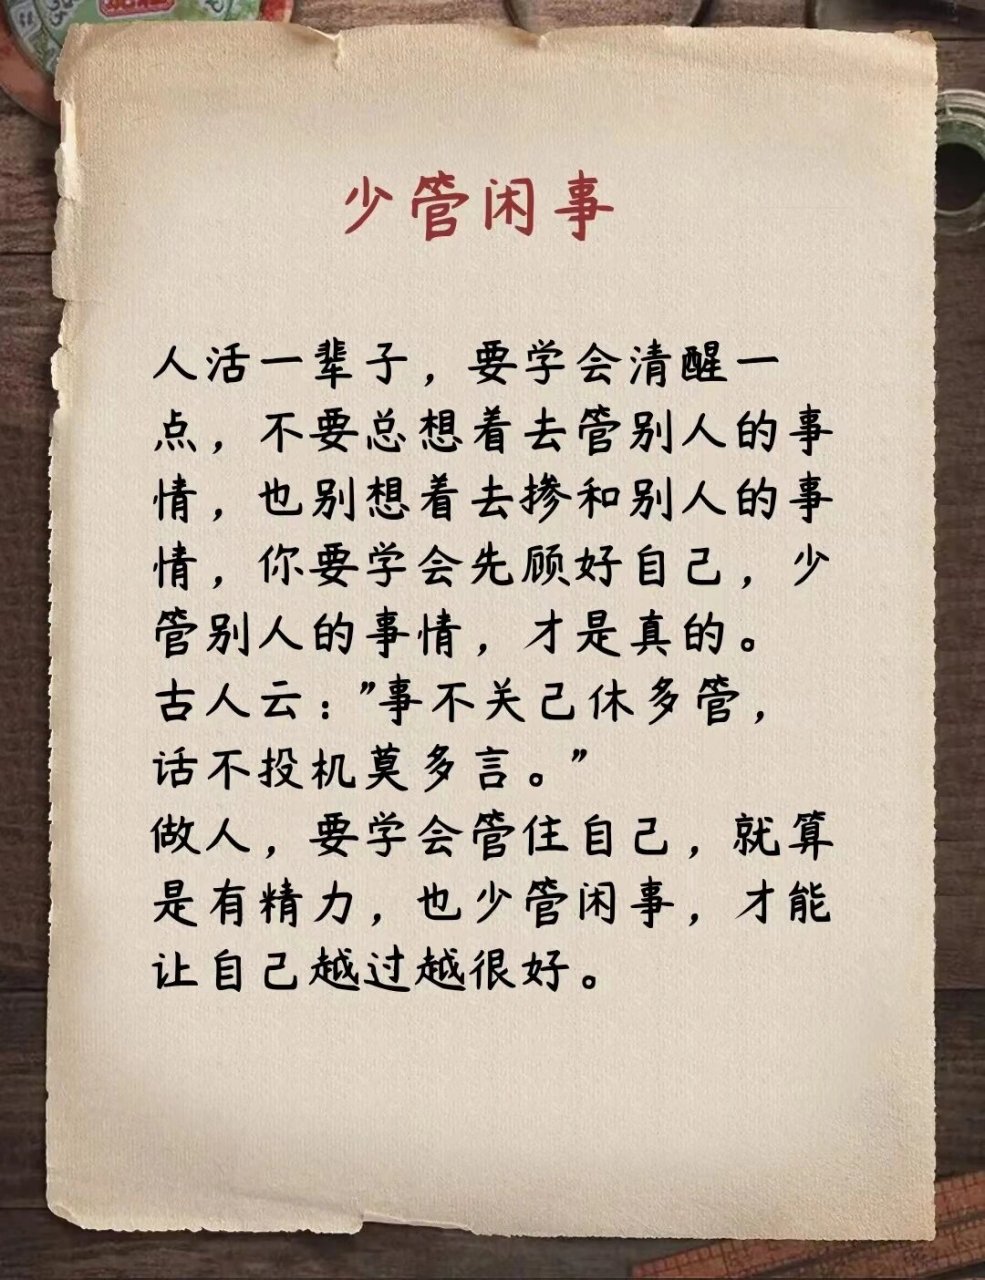 少管闲事
人活一辈子，要学会清醒一
点，不要总想着去管别人的事
情，也别想着去掺和别人的事
情，你要学会先顾好自己，少
管别人的事情，才是真的。
古人云："事不关己休多管，
话不投机莫多言。"
做人，要学会管住自己，就算
是有精力，也少管闲事，才能
让自己越过越很好。